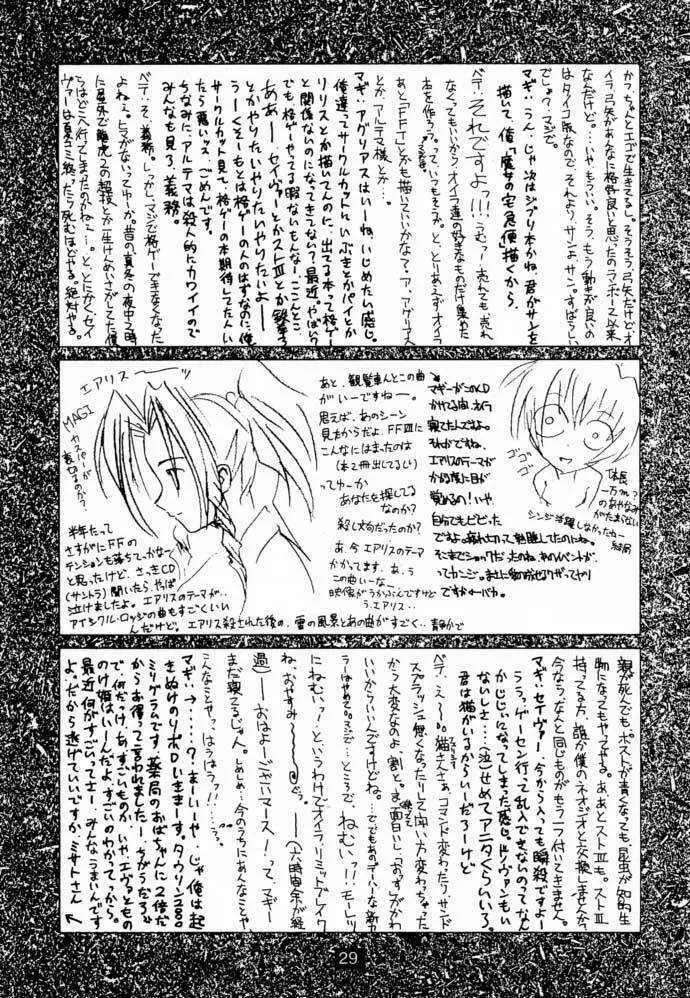 かつ、ちゃんとエゴで生きてるし。そうそう、弓矢だけど、オ
イラ弓矢があんなに格好良いと思ったのランボー以来
なんだけど。…いやもういい。そう、もう動きが良いの
はタイコ版なので、それより、サンよ、サン。すばらしい
でしょ？マジで。
マギ:うん。じゃ次はジブリ本かね、君がサンを
描いて、俺「魔女の宅急便」描くから、
ベテ:それですよっ!!!うむっ!売れても売れ
なくてもいいからオイラ達の好きなものだけ集めた
本を作ろうっ。って、いつもそうか。と、とりあえずオイラ
あと「FFT」とかも描いていいかな？ア、アグリアス
とか、アルテマ様とか…。
マギ:アグリアスはいーね、いじめたい感じ。
俺達ってサークルカットにいぶきとかパイとか
リリスとか描いてんのに、出てる本って格ゲー
と関係ないのになってきてない？最近。やばい？
でも格ゲーやってる暇ないもんなー、ここんとこ。
ああー、セイヴァーとかストIIIとか鉄拳3
とかやりたいやりたいやりたいよー
うーくそーもとは格ゲーの人のはずなのに、俺
サークルカット見て、格ゲーの本期待してた人い
たら罪いッスごめんです。
ちなみに、アルテマは殺人的にカワイイので
みんなも見ろ、義務。
ベテ:そ、義務。しっかし、マジで格ゲーできなくなった
よねぇ。ヒマがないってゆーか。昔の真冬の夜中2時
に屋外で龍虎2の超技とか一生けんめいさがしてた僕
たちはどこへ行ってしまったのかねぇー。と、とにかくセイ
ヴァーは夏コミ終ったら死ぬほどやる。絶対やる。
エアリス→
MAGI
カスパーが
裏切るのか？
半年たって
さすがにFFの
テンションも落ちてっかなて
と思ったけど、さっきCD
(サントラ)聞いたら、やば
泣けましたよ。エアリスのテーマが…
アイシクル・ロッジの曲もすごくいい
んだけど。エアリス殺された後の、雪の風景とあの曲がすごく…静かで
あと、観覧車んとこの曲
がいーですねー。
思えば、あのシーン
見たからだよ、FFVIIに
こんなにはまったのは
(本2冊出てるし)
ってゆーか
あなたを探してる
なのか？
殺し文句だったのか？
あ、今エアリスのテーマ
かかってます。あ、う
この曲いーな…
映像がうかぶんですけど
う、エアリス…
マギーがこのCD
かけてる間、オイラ
寝てたんですよ。
それがですね、
エアリスのテーマが
かかる度に目が
覚めるの!いや、
自分でもビビった
ですよ。疲れ切って熟睡してたのにね。
そこまでショックだったのね、あのイベントが、
ってカンジ。
ですかーバカ。
ゴゴゴ
体長
一万m？
のあやなみ
がたまがない
シンジ活躍しなかったねー
結局
親が死んでも、ポストが青くなっても、昆虫が知的生
物になってもやってやる。ああとストIIIも。ストIII
持ってる方、誰か僕のネオジオと交換しませんか？
今なら、なんと同じものがもう一つ付いてきません。
マギ:セイヴァー、今から入っても瞬殺ですよー
ううっ。ゲーセン行って乱入できないのってなん
かじじいになってしまった感じ。ドノヴァンもい
ないしさ…(泣)せめてアニタくらいいろ。
君は猫がいるからいーだろーけど
ベテ:え〜。猫さんさぁ、コマンド変わたりサンド
スプラッシュ無くなったりして闘い方変わっちゃった
から大変なのよ、割と。ま、面白いし「おす」がかわ
いいからいいんですけどね。…でもあのデハーな新カ
ラーはやめて。マジで…ところで、ねむいっ!!モーレツ
にねむいっ!というわけでオイラリミットブレイク
ね。おやすみ〜。ー(六時間余が経
過)ーおはよーございマース!って、マギー
まだ寝てるじゃん。しめしめ、今のうちにあんなことや
こんなことやっ。はうはうっ!!…。
マギ:→……？まーいーや、じゃ俺は起
きぬけのリポDいきまーす。タウリン2000
ミリグラムです。薬局のおばちゃんに「2倍だ
からお得」って言われましたー。ちがうだろ。
で、何だっけ、あ、すごいものか。いや、エヴァともの
のけ姫はいーんだよ、すごいのわかってっから。
最近何がすごいってさー、みんなうまいんです
よ。だから逃げていいですか、ミサトさん
29